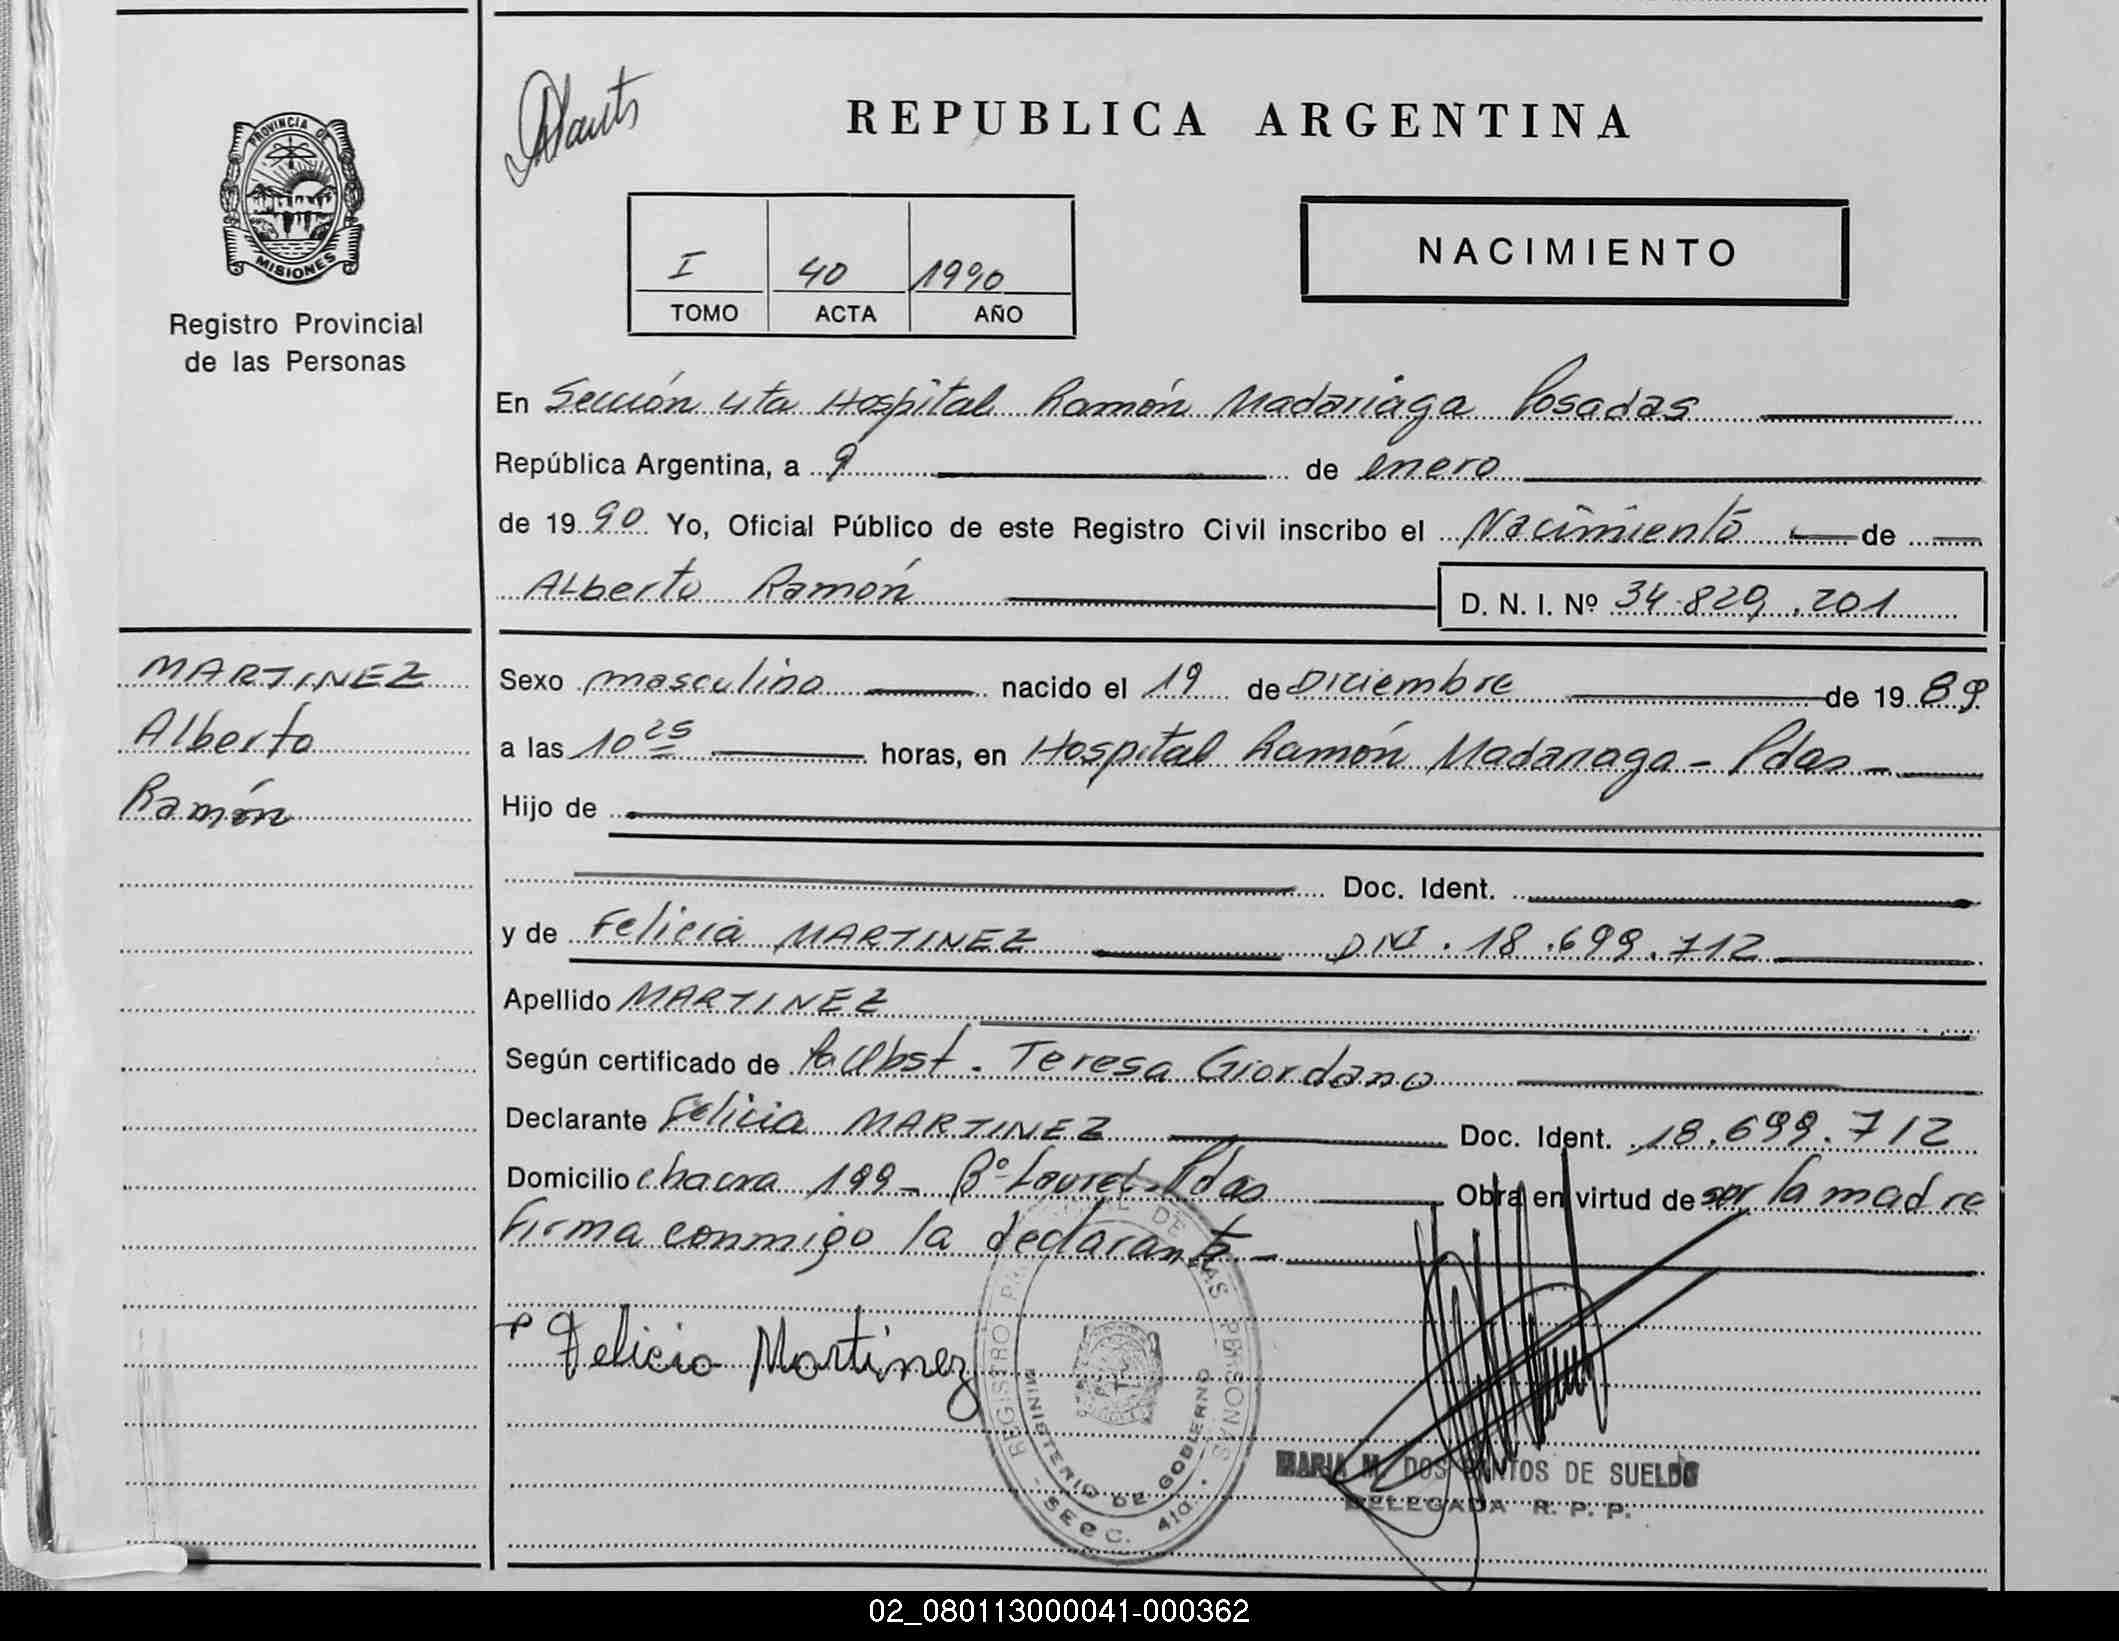 PROVINCIA DE
MISIONES
Registro Provincial
de las Personas
REPUBLICA ARGENTINA
NACIMIENTO
I 40 1990
TOMO ACTA AÑO
En Sección 4ta Hospital Ramón Madariaga Posadas
República Argentina, a 9 de enero
de 1990 Yo, Oficial Público de este Registro Civil inscribo el Nacimiento de
Alberto Ramón D. N. I. Nº 34.829.201
MARTINEZ
Alberto
Ramón
Sexo masculino nacido el 19 de Diciembre de 1989
a las 10 25 horas, en Hospital Ramón Madariaga - Pdas -
Hijo de
Doc. Ident.
y de Felicia MARTINEZ DNI. 18.699.712
Apellido MARTINEZ
Según certificado de Obst. Teresa Giordano
Declarante Felicia MARTINEZ Doc. Ident. 18.699.712
Domicilio chacra 199 - Bº Pdas Obra en virtud de ser la madre
Firma conmigo la declarante -
Felicia Martinez
REGISTRO PROVINCIAL DE LAS PERSONAS
MINISTERIO DE GOBIERNO
- SECC. 4ta. -
MARIA M. DOS SANTOS DE SUELDO
DELEGADA R. P. P.
02_080113000041-000362